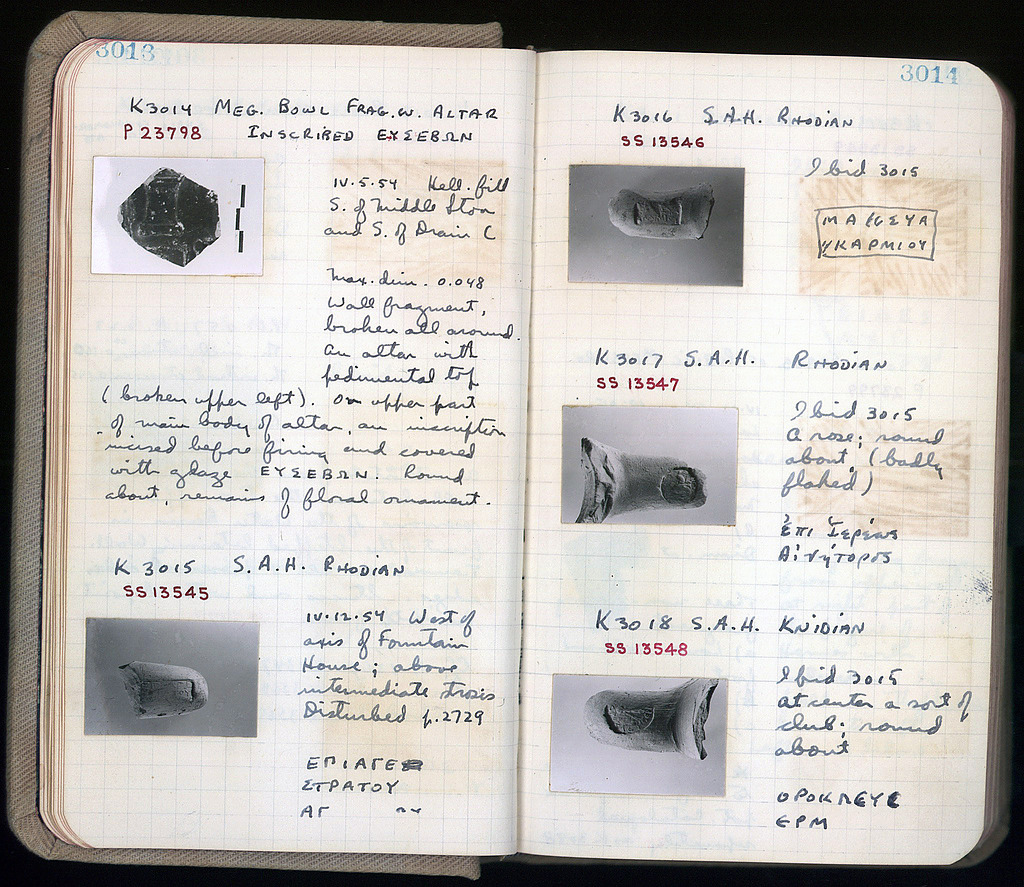 3013
K3014 MEG. BOWL FRAG. W. ALTAR
P 23798 INSCRIBED ΕΥΣΕΒΩΝ
IV.5.54 Hell. fill
S. of Middle Stoa
and S. of Drain C
Max. dim. 0.048
Wall fragment,
broken all around.
An altar with
pedimental top
(broken upper left). On upper part
of main body of altar, an inscription
incised before firing and covered
with glaze ΕΥΣΕΒΩΝ. Round
about, remains of floral ornament.
K 3015 S.A.H. RHODIAN
SS 13545
IV.12.54 West of
axis of Fountain
House; above
intermediate
Disturbed p.2729
ΕΠΙΑΓΕ
ΣΤΡΑΤΟΥ
ΑΓ
3014
K3016 S.A.H. RHODIAN
SS 13546
Ibid 3015
ΥΚΑΡΜΙΟΥ
K3017 S.A.H. RHODIAN
SS 13547
Ibid 3015
A rose; round
about, (badly
flaked)
Ἐπὶ Ἱερέως
Αἰνήτορος
K3018 S.A.H. KNIDIAN
SS 13548
Ibid 3015
at center a sort of
club; round
about
ΟΡΟΚΛΕΥϹ
ΕΡΜ